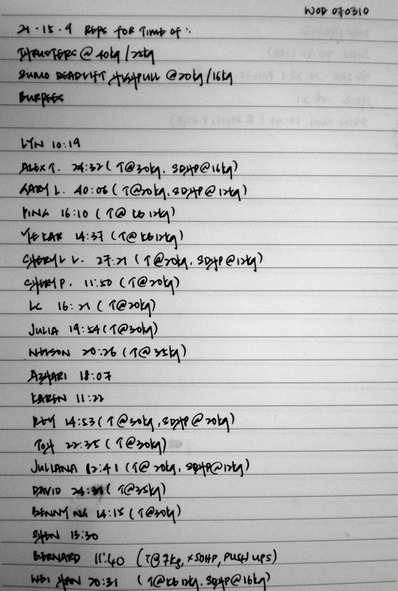 WOD 070310
21-15-9 REPS FOR TIME OF:
THRUSTERS @ 40kg/25kg
SUMO DEADLIFT HIGHPULL @ 20kg/16kg
BURPEES
LYN 10:19
ALEX T. 24:32 (T@30kg, SDHP@16kg)
GARY L. 40:06 (T@20kg, SDHP@12kg)
PING 16:10 (T@KB12kg)
YE KAR 14:37 (T@KB12kg)
CHERYL L. 27:21 (T@20kg, SDHP@12kg)
CHERYL P. 11:50 (T@20kg)
LC 16:21 (T@20kg)
JULIA 19:54 (T@20kg)
NELSON 20:26 (T@35kg)
AZHARI 18:07
KAREN 11:22
REY 14:53 (T@30kg, SDHP@20kg)
TOH 22:35 (T@30kg)
JULIANA 12:41 (T@20kg, SDHP@12kg)
DAVID 24:31 (T@35kg)
BENNY NG 14:15 (T@30kg)
SHEN 13:30
BERNARD 11:40 (T@7kg, XSDHP, PUSH UPS)
WEI HAN 20:31 (T@KB12kg, SDHP@16kg)